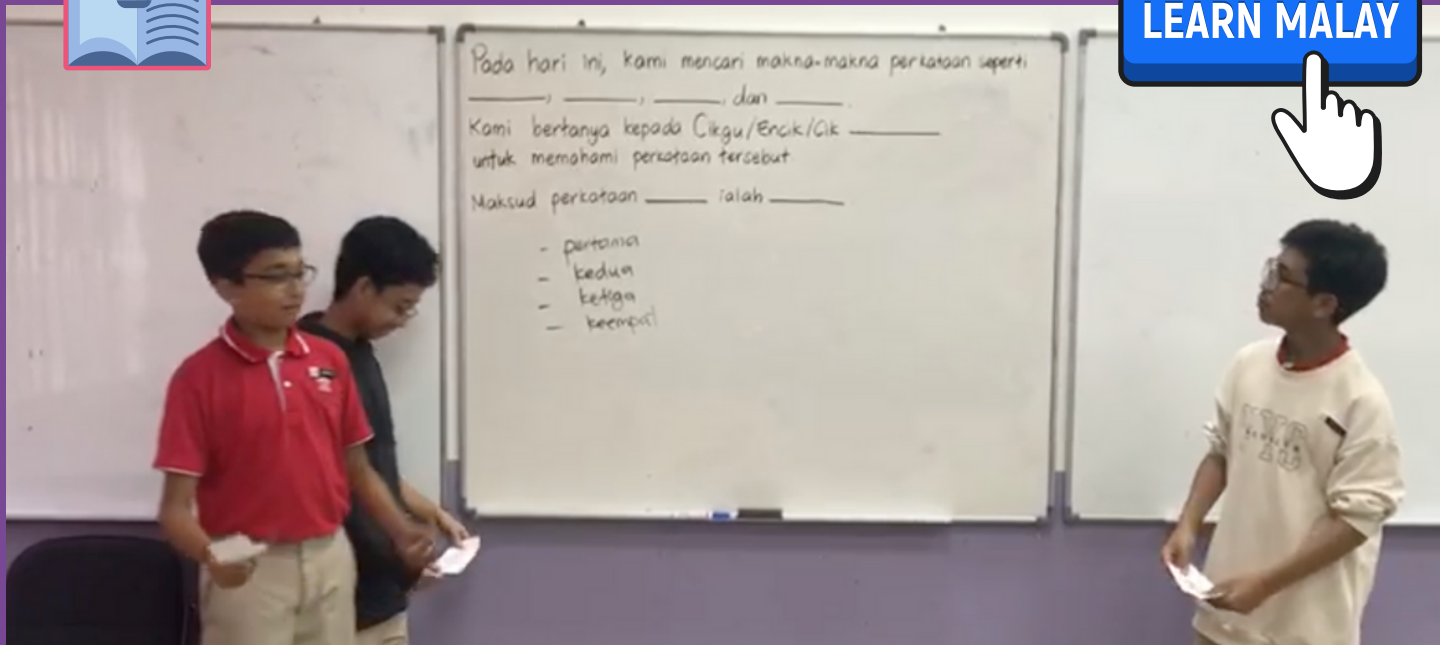 LEARN MALAY
Pada hari ini, kami mencari makna-makna perkataan seperti
______, ______, ______, dan ______.
Kami bertanya kepada Cikgu/Encik/Cik ______
untuk memahami perkataan tersebut
Maksud perkataan ______ ialah ______
- pertama
- kedua
- ketiga
- keempat